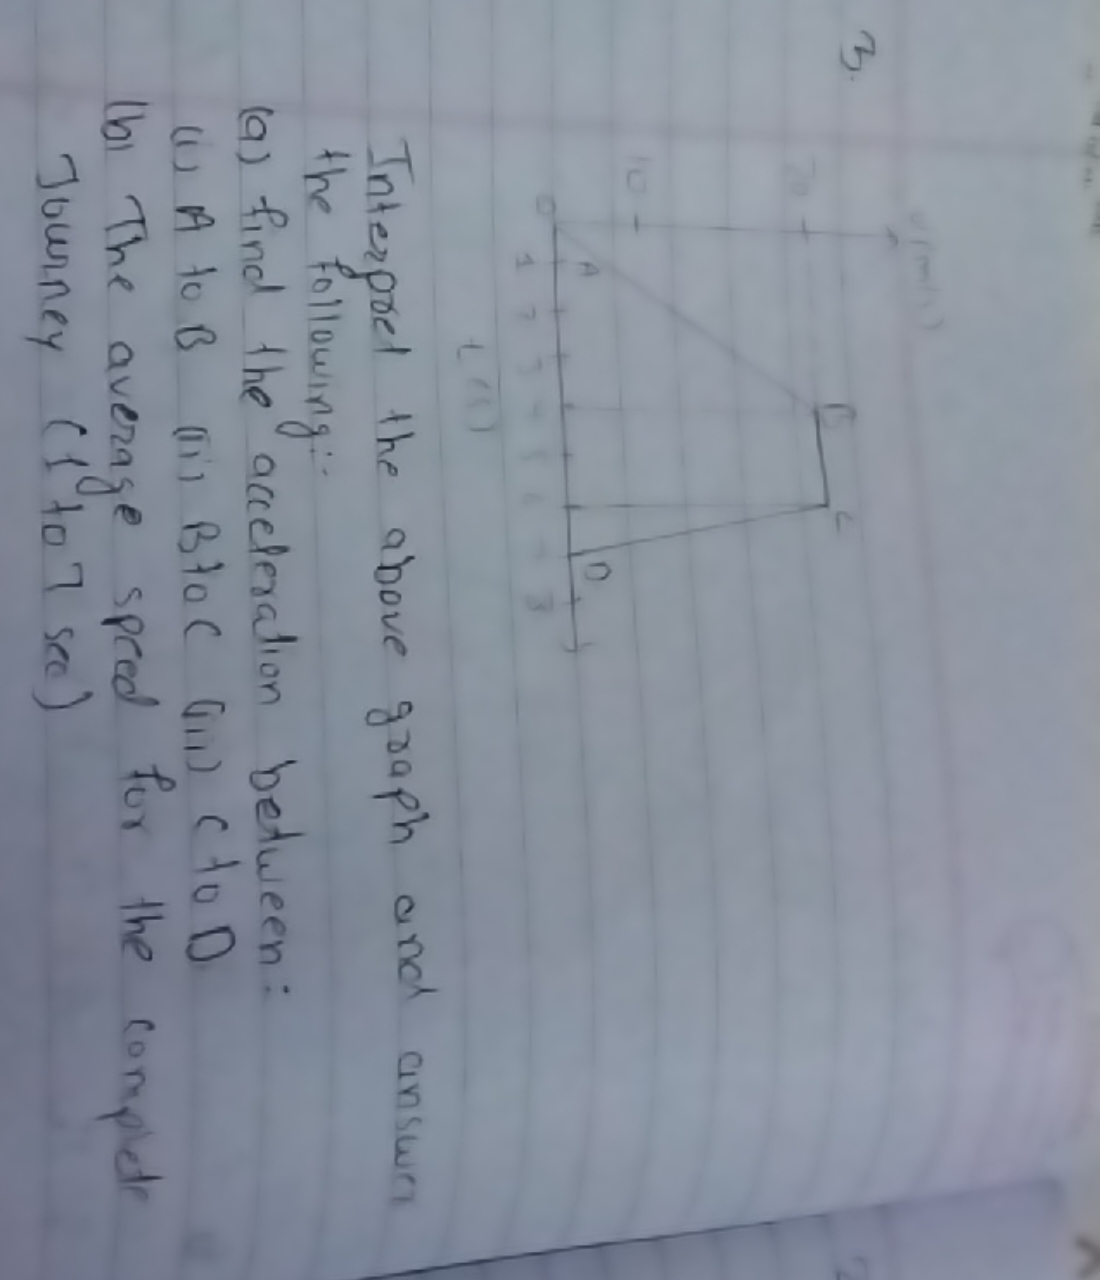 3.
v(m/s)
20
10
0
A
B
C
D
1 2 3 4 5 6 7 8
t(s)
Interpret the above graph and answer
the following:-
(a) find the acceleration between:
(i) A to B (ii) B to C (iii) C to D
(b) The average speed for the complete
Journey (1 to 7 sec)